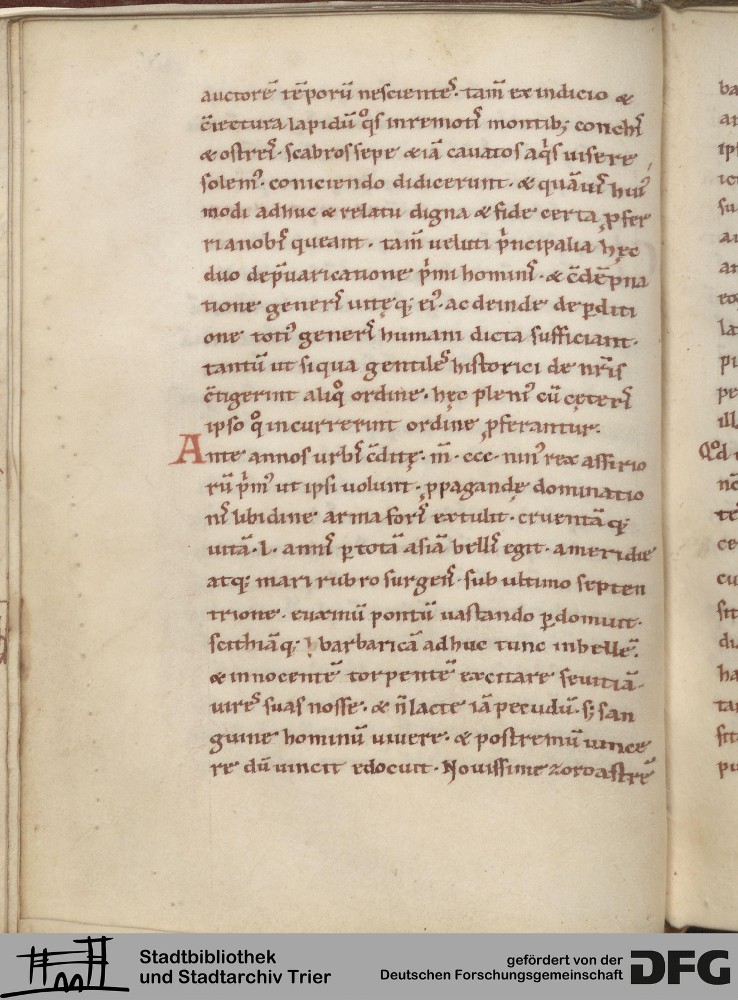 auctorē tēporū nescientēs. tam̄ ex indicio &
c̄iectura lapidū q°s in remotis montib; conchis
& ostreis. scabros sepe & iā cauatos aq̄s uisere
solem'. coniciendo didicerunt. & quāuis hui'
modi adhuc & relatu digna & fide certa ꝓfer
ri a nobis queant. tam̄ ueluti p̄ncipalia hęc
duo dep̄uaricatione p̄mi hominis. & c̄dēpna
tione generis uitęq; ei'. ac deinde de ꝑditi
one toti' generis humani dicta sufficiant.
tantū ut siqua gentiles historici de nr̄is
c̄tigerint aliq° ordine. hęc pleni' cū cęteris
ipso q° incurrerint ordine ꝓferantur.
Ante annos urbis c̄ditę. m̄. ccc. nin' rex assirio
rū p̄m' ut ipsi uolunt. ꝓpagandę dominatio
nis libidine arma foris extulit. cruentāq;
uitā. l. annis ꝑ totā asiā bellis egit. a meridie
atq; mari rubro surgens. sub ultimo septen
trione. euxinū pontū uastando ꝑdomuit.
scithiāq; barbaricā adhuc tunc inbellē.
& innocentē torpentē excitare seuitiā.
uires suas nosse. & n̄ lacte iā pecudū. s; san
guine hominū uiuere. & postremū uince
re dū uincit edocuit. Nouissime zoroastrē
ba
ar
ip
ic
su
a
an
eo
la
pi
pe
ill
Qd
nc
te
ce
cu
sit
di
ha
tai
sit
pu
Stadtbibliothek
und Stadtarchiv Trier
gefördert von der
Deutschen Forschungsgemeinschaft
DFG